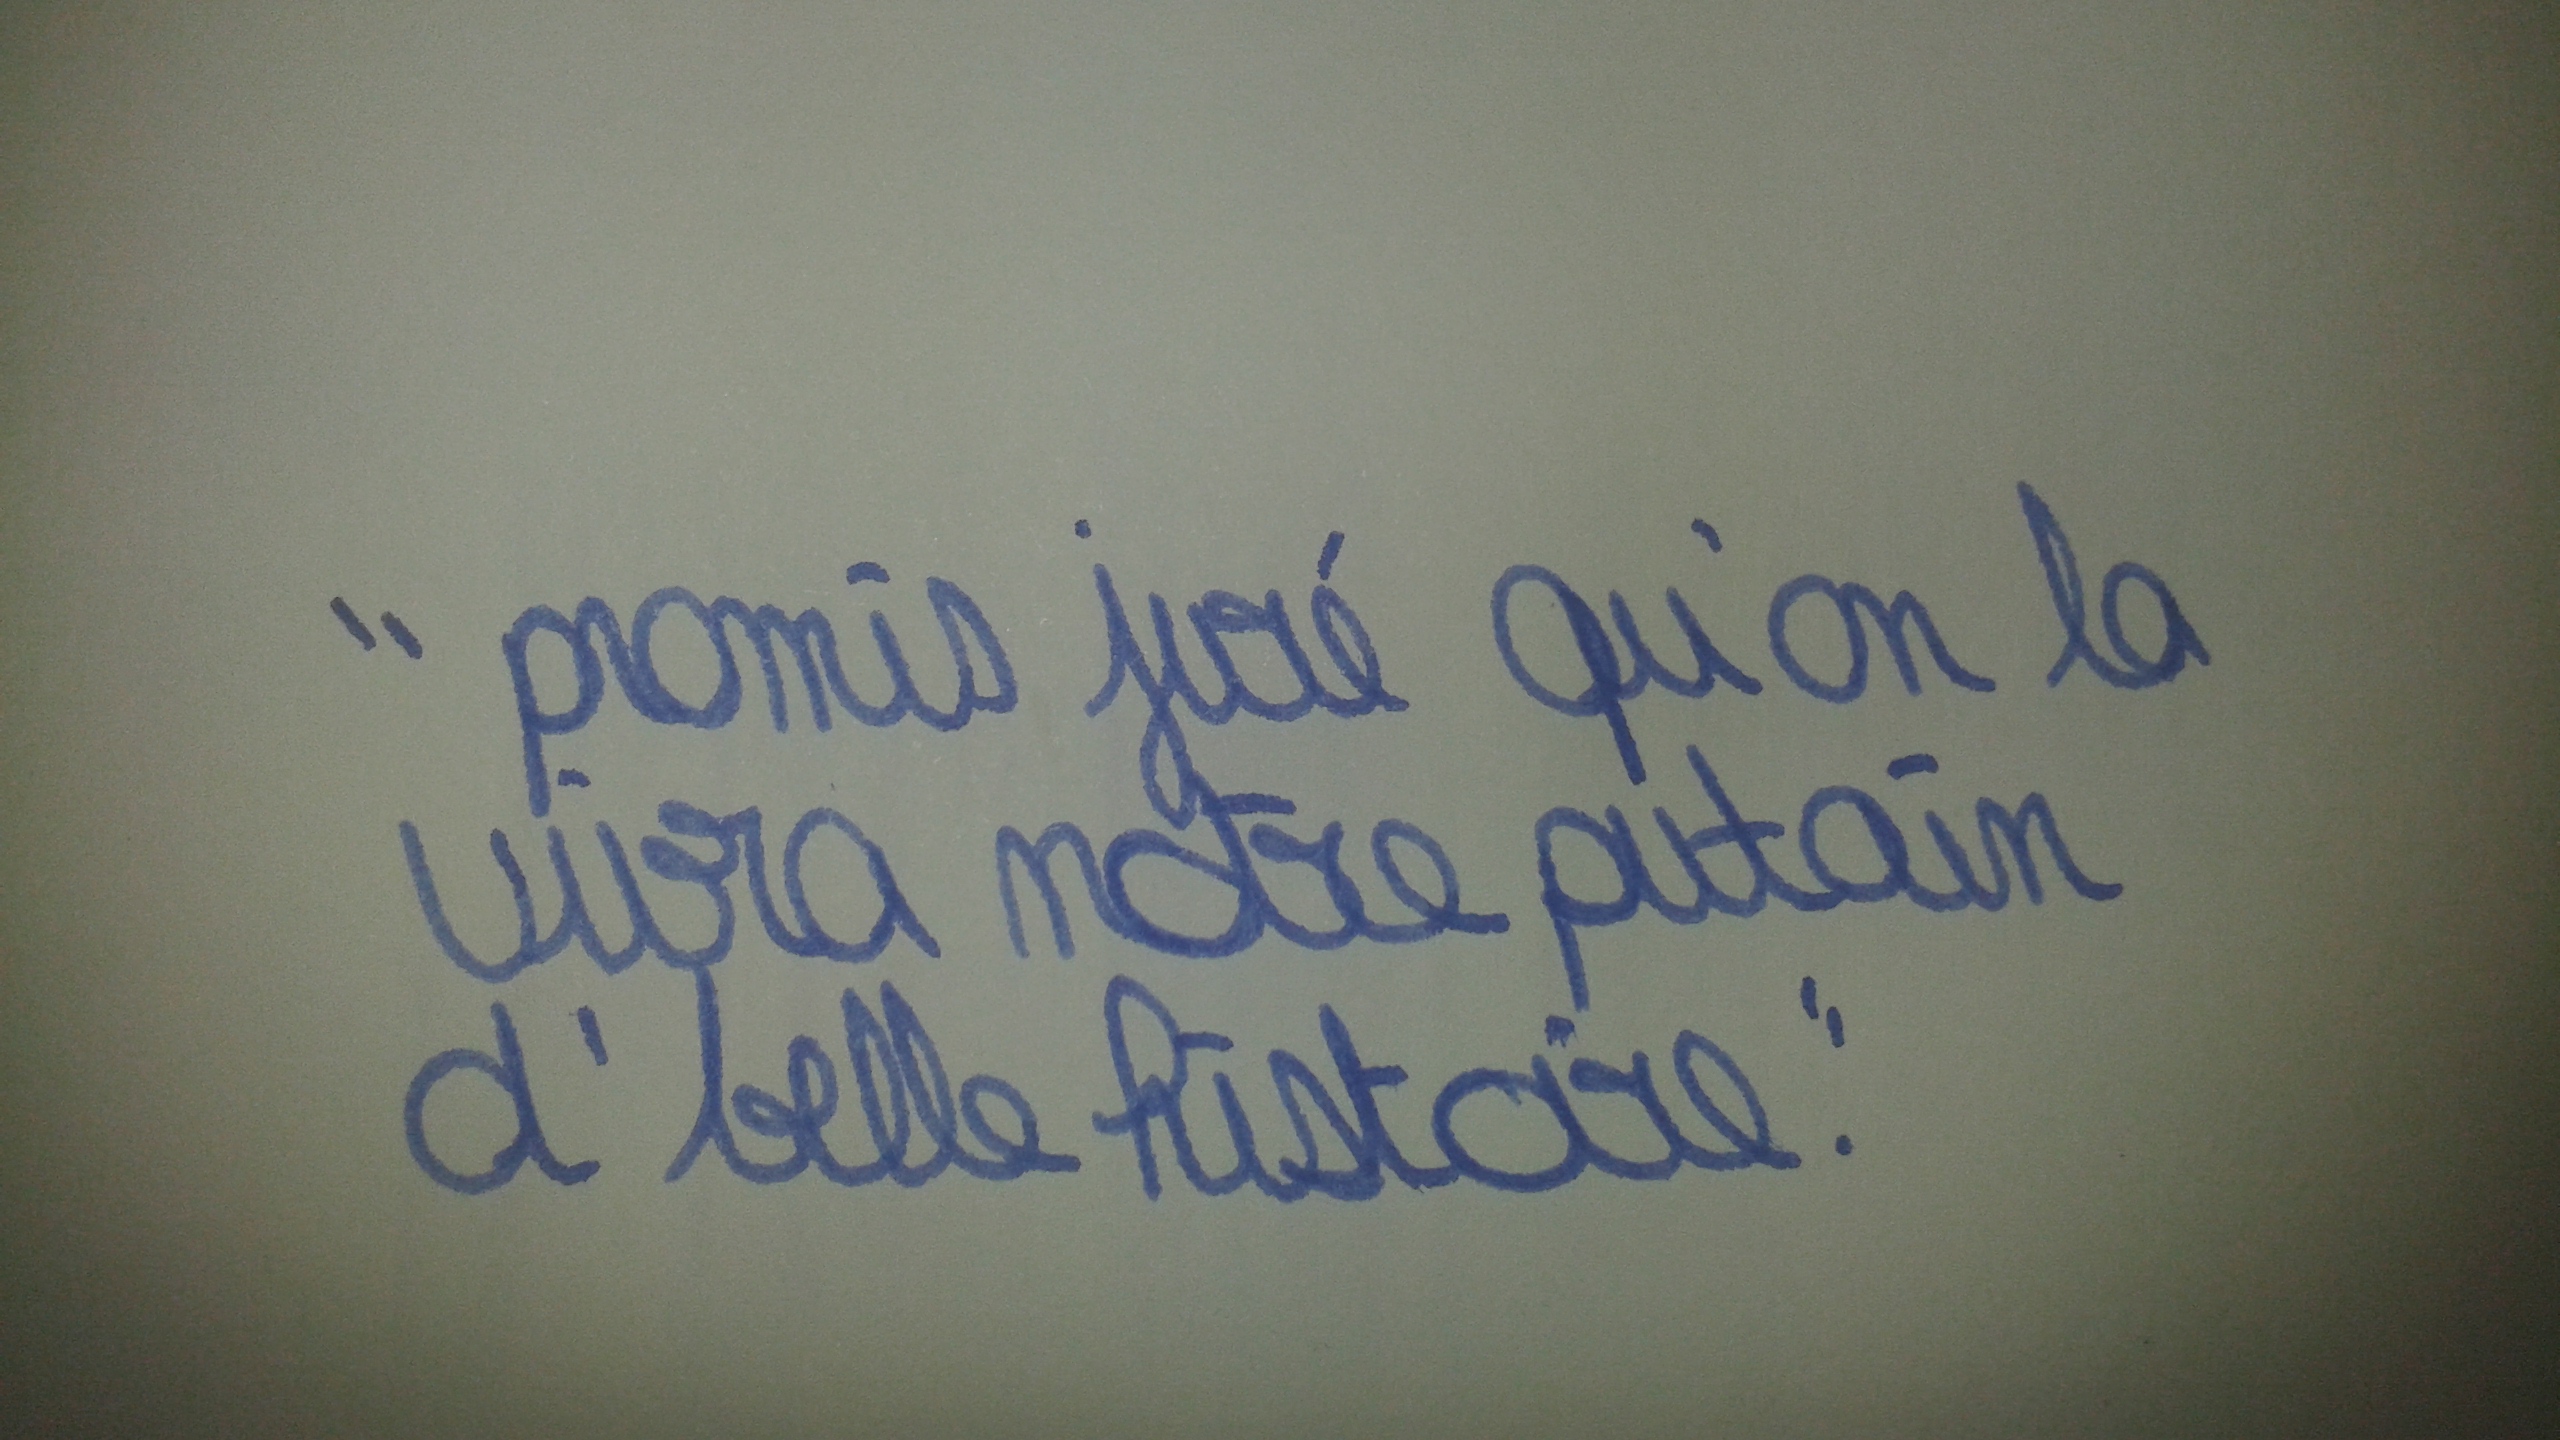 " promis juré qu'on la
vivra notre putain
d' belle histoire".